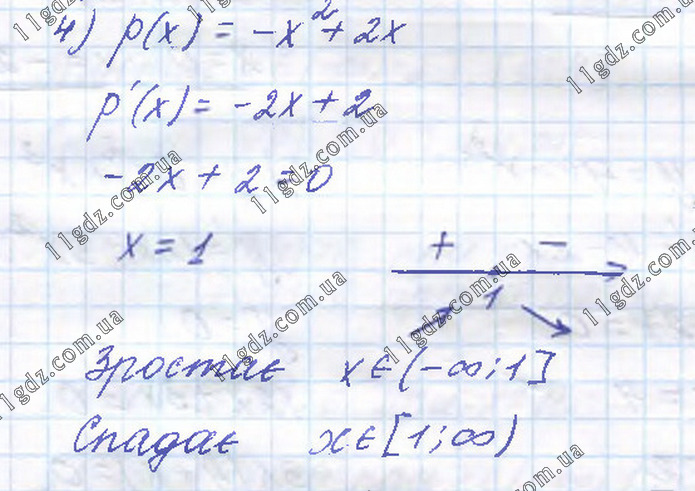 4) p(x) = -x² + 2x
p'(x) = -2x + 2
-2x + 2 = 0
x = 1
+ -
1
Зростає x ∈ (-∞; 1]
Спадає x ∈ [1; ∞)
11gdz.com.ua
11gdz.com.ua
11gdz.com.ua
11gdz.com.ua
11gdz.com.ua
11gdz.com.ua
11gdz.com.ua
11gdz.com.ua
11gdz.com.ua
11gdz.com.ua